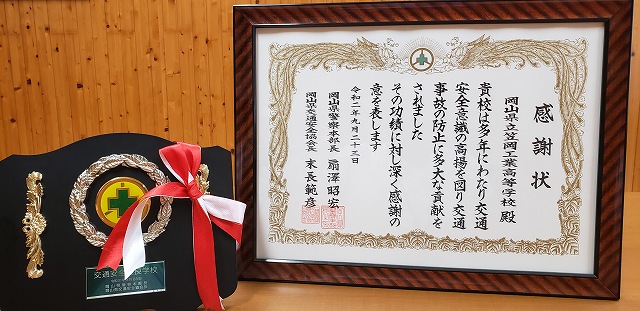 感謝状
岡山県立笠岡工業高等学校 殿
貴校は多年にわたり交通
安全意識の高揚を図り交通
事故の防止に多大な貢献を
されました
その功績に対し深く感謝の
意を表します
令和二年九月二十三日
岡山県警察本部長 扇澤昭宏
岡山県交通安全協会長 末長範彦
交通安
学校